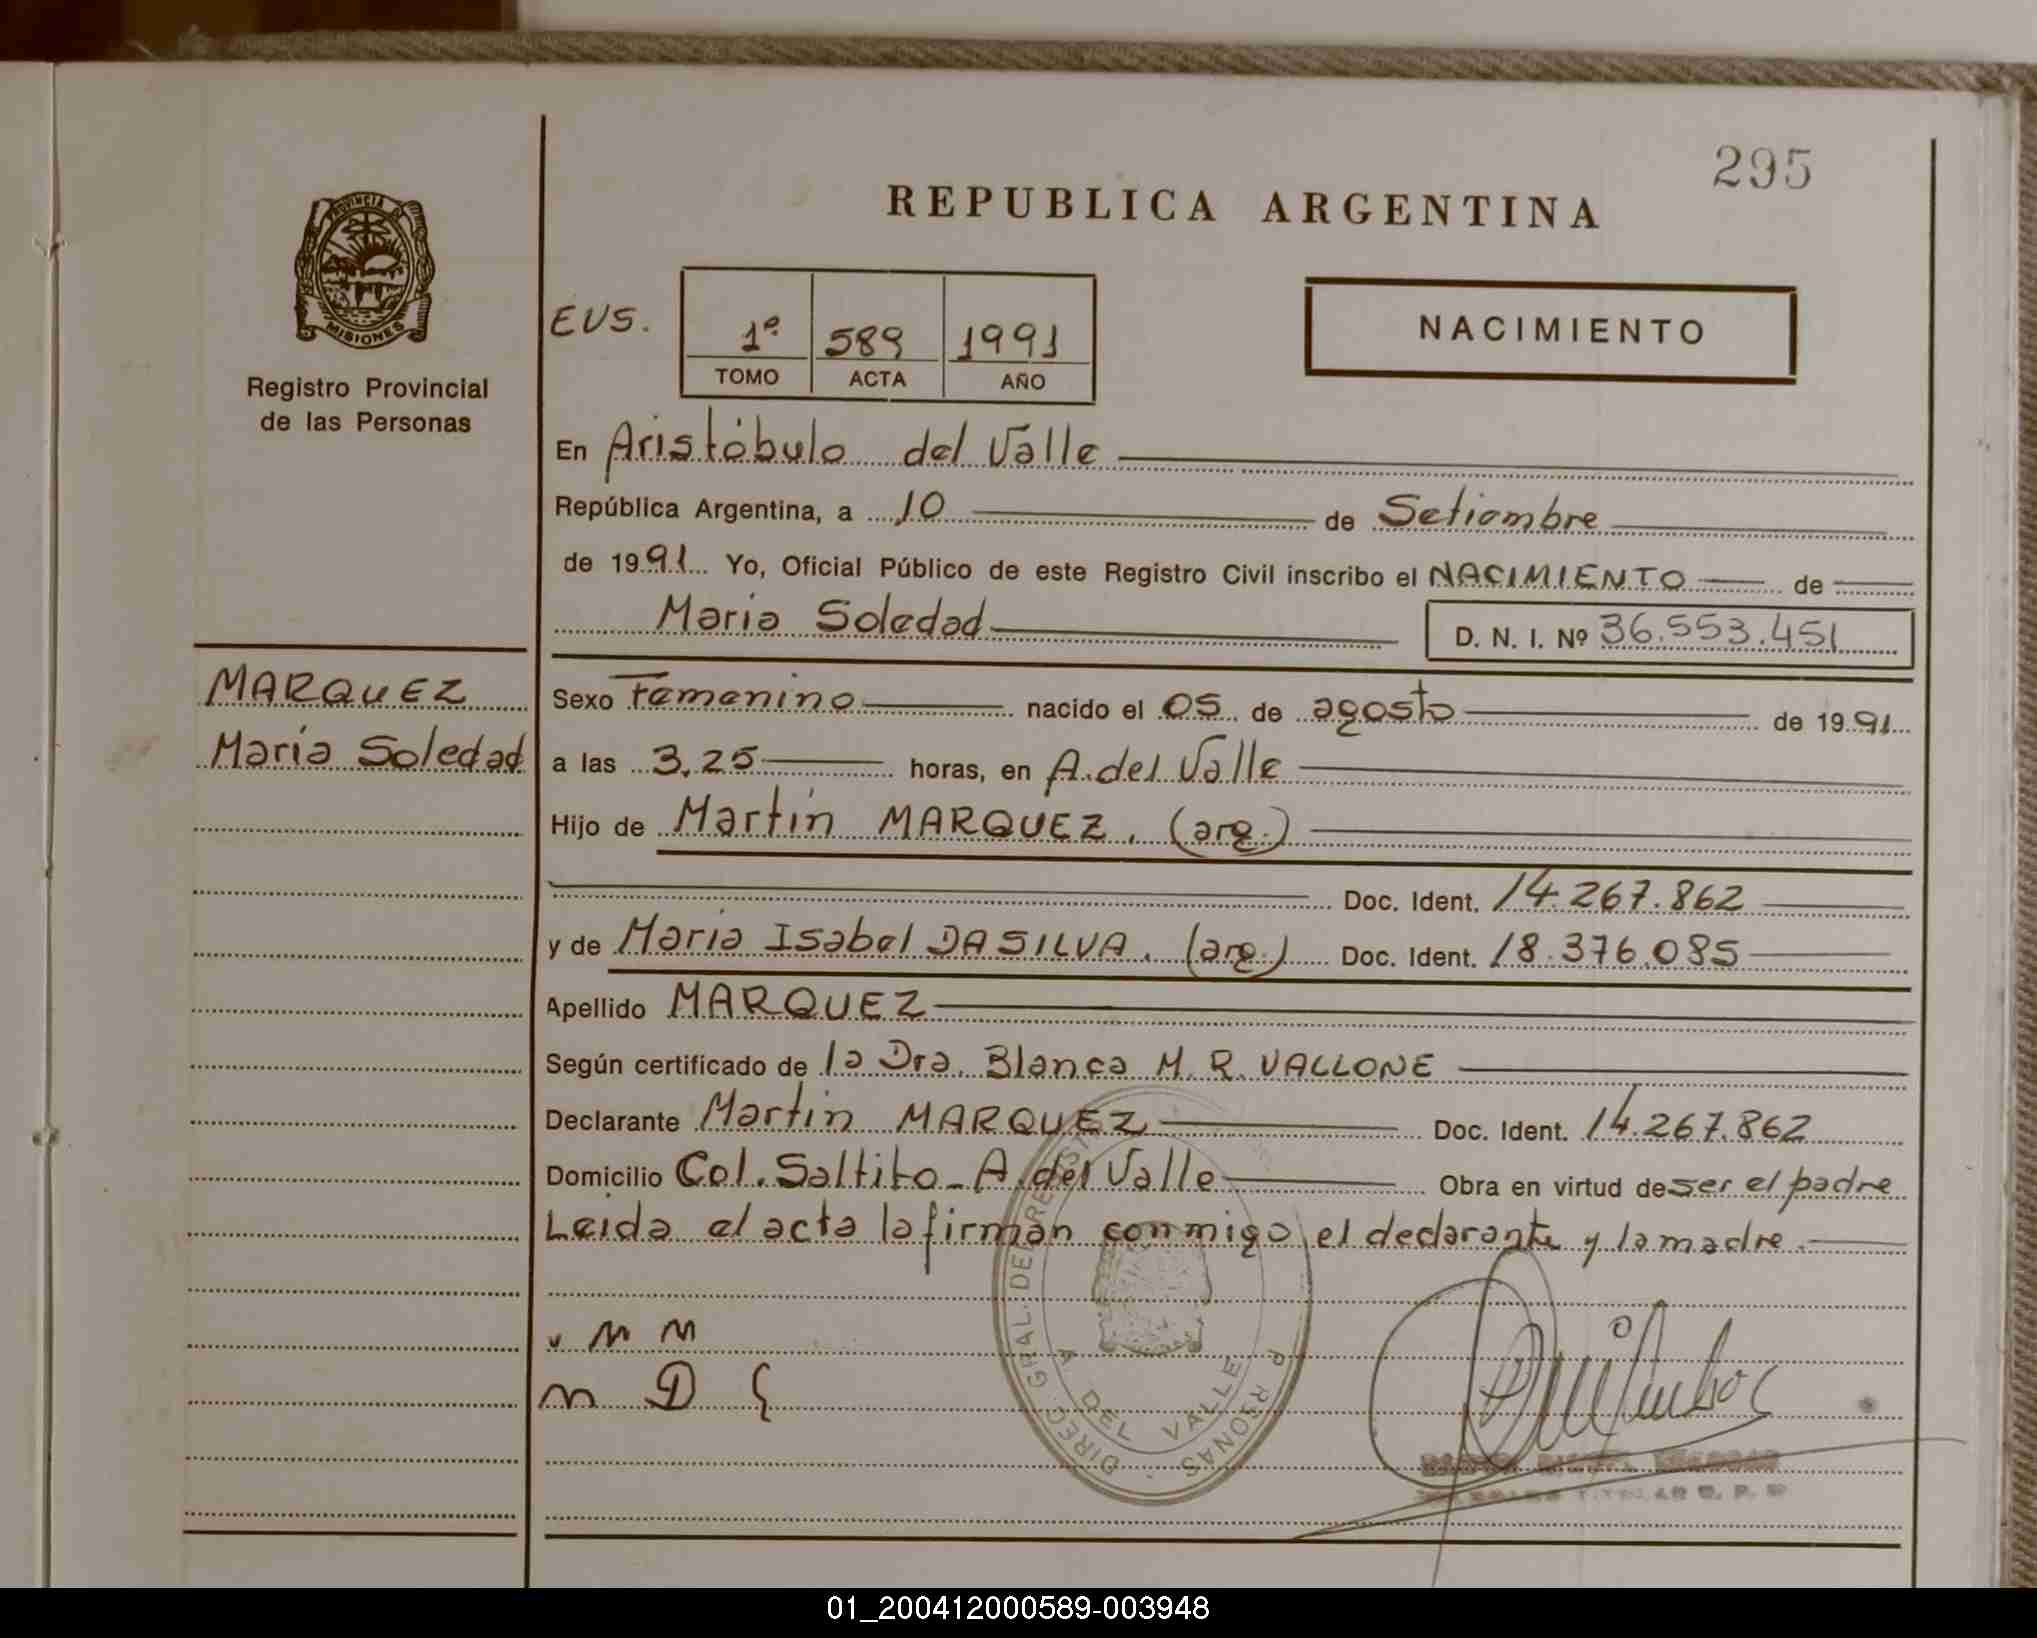 295
REPUBLICA ARGENTINA
PROVINCIA DE
MISIONES
Registro Provincial
de las Personas
EUS.
1º 589 1991
TOMO ACTA AÑO
NACIMIENTO
En Aristóbulo del Valle
República Argentina, a 10 de Setiembre
de 1991 Yo, Oficial Público de este Registro Civil inscribo el NACIMIENTO de
Maria Soledad D. N. I. Nº 36.553.451
MARQUEZ
María Soledad
Sexo Femenino nacido el 05 de agosto de 1991
a las 3,25 horas, en A. del Valle
Hijo de Martín MARQUEZ. (arg.)
Doc. Ident. 14.267.862
y de Maria Isabel DA SILVA. (arg.) Doc. Ident. 18.376.085
Apellido MARQUEZ
Según certificado de la Dra. Blanca M. R. VALLONE
Declarante Martín MARQUEZ Doc. Ident. 14.267.862
Domicilio Col. Saltito - A. del Valle Obra en virtud de ser el padre
Leida el acta la firman conmigo el declarante y la madre.
M M
M D
DIREC. GRAL. DEL REGIST
A DEL VALLE
01_200412000589-003948